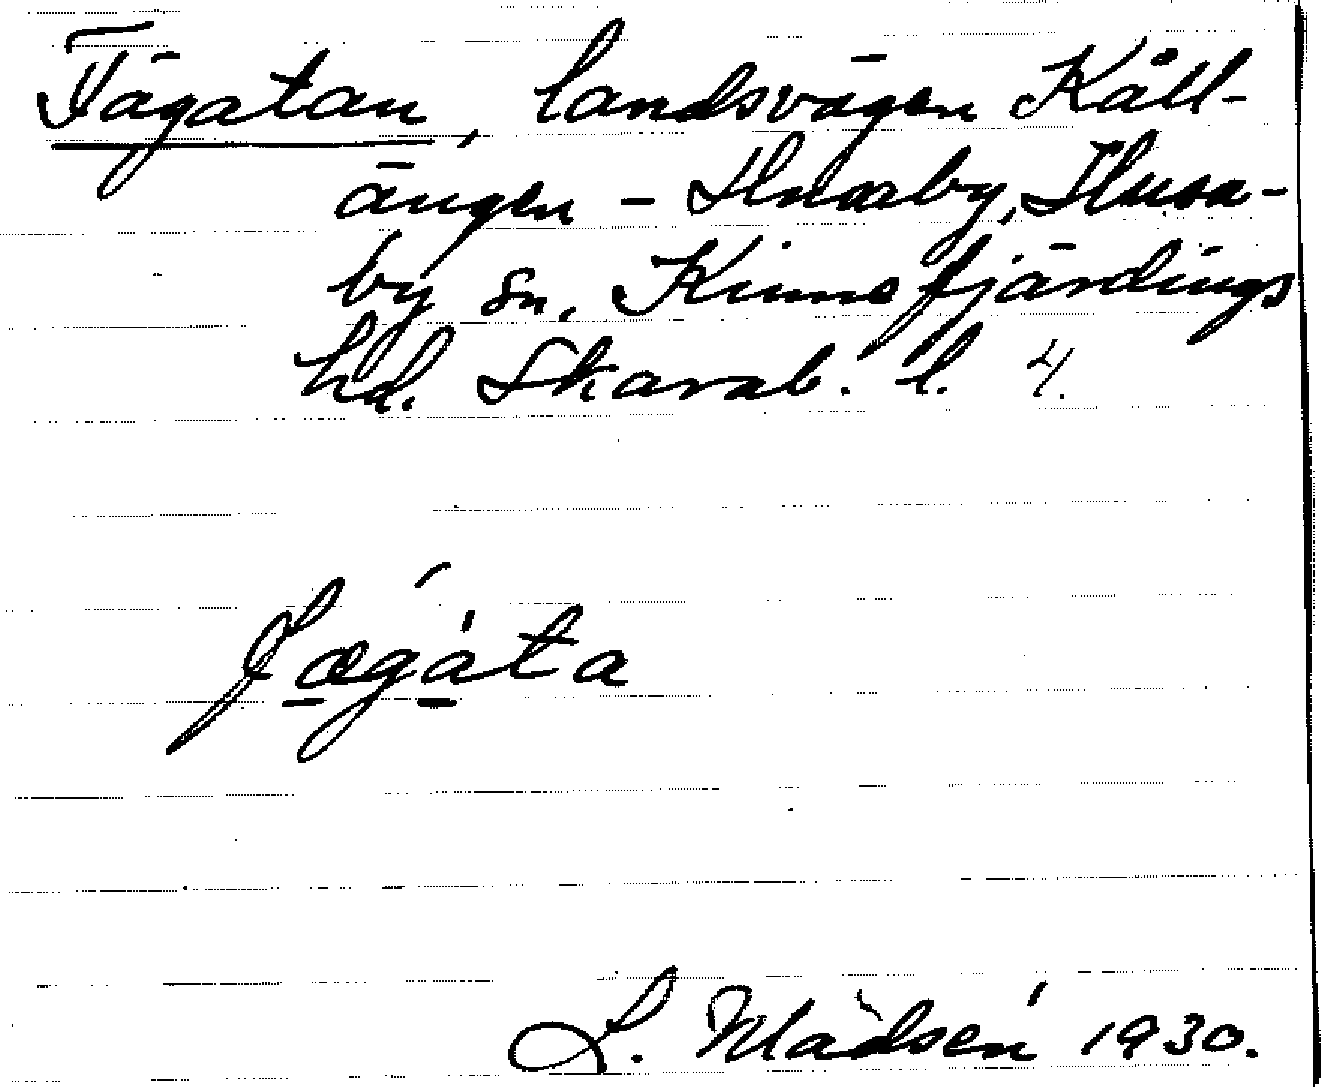 Fägatan, landsvägen Käll-
ängen - Husaby, Husa-
by sn, Kinnefjärdings
hd. Skarab. l. 4.
fægáta
L. Mådsén 1930.